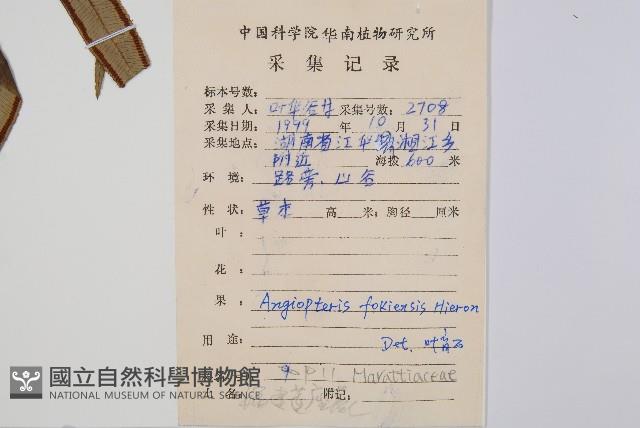 中国科学院华南植物研究所
采集记录
标本号数:
采集人: 叶华谷等 采集号数: 2708
采集日期: 1999 年 10 月 31 日
采集地点: 湖南省江华县湘江乡
附近 海拨 600 米
环境: 路旁、山谷
性状: 草本 高 米; 胸径 厘米
叶:
花:
果: Angiopteris fokiensis Hieron
用途: Det. 叶育石
P11 Marattiaceae
名: 附记:
國立自然科學博物館
NATIONAL MUSEUM OF NATURAL SCIENCE